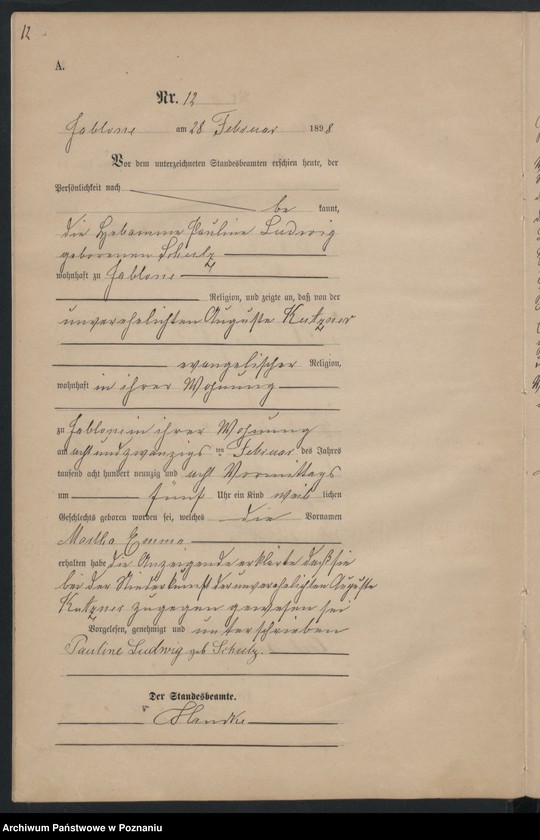 12
A.
Nr. 12
Jablone am 28 Februar 1898
Vor dem unterzeichneten Standesbeamten erschien heute, der
Persönlichkeit nach
be kannt,
die Hebamme Pauline Ludwig
geborenen Schulz
wohnhaft zu Jablone
Religion, und zeigte an, daß von der
unverehelichten Auguste Kutzner
evangelischer Religion,
wohnhaft in ihrer Wohnung
zu Jablone in ihrer Wohnung
am acht und zwanzigs ten Februar des Jahres
tausend acht hundert neunzig und acht Vormittags
um fünf Uhr ein Kind weib lichen
Geschlechts geboren worden sei, welches die Vornamen
Martha Emma
erhalten habe die Anzeigende erklärte daß sie
bei der Niederkunft der unverehelichten Auguste
Kutzner zugegen gewesen sei
Vorgelesen, genehmigt und unterschrieben
Pauline Ludwig geb Schulz.
Der Standesbeamte.
Archiwum Państwowe w Poznaniu